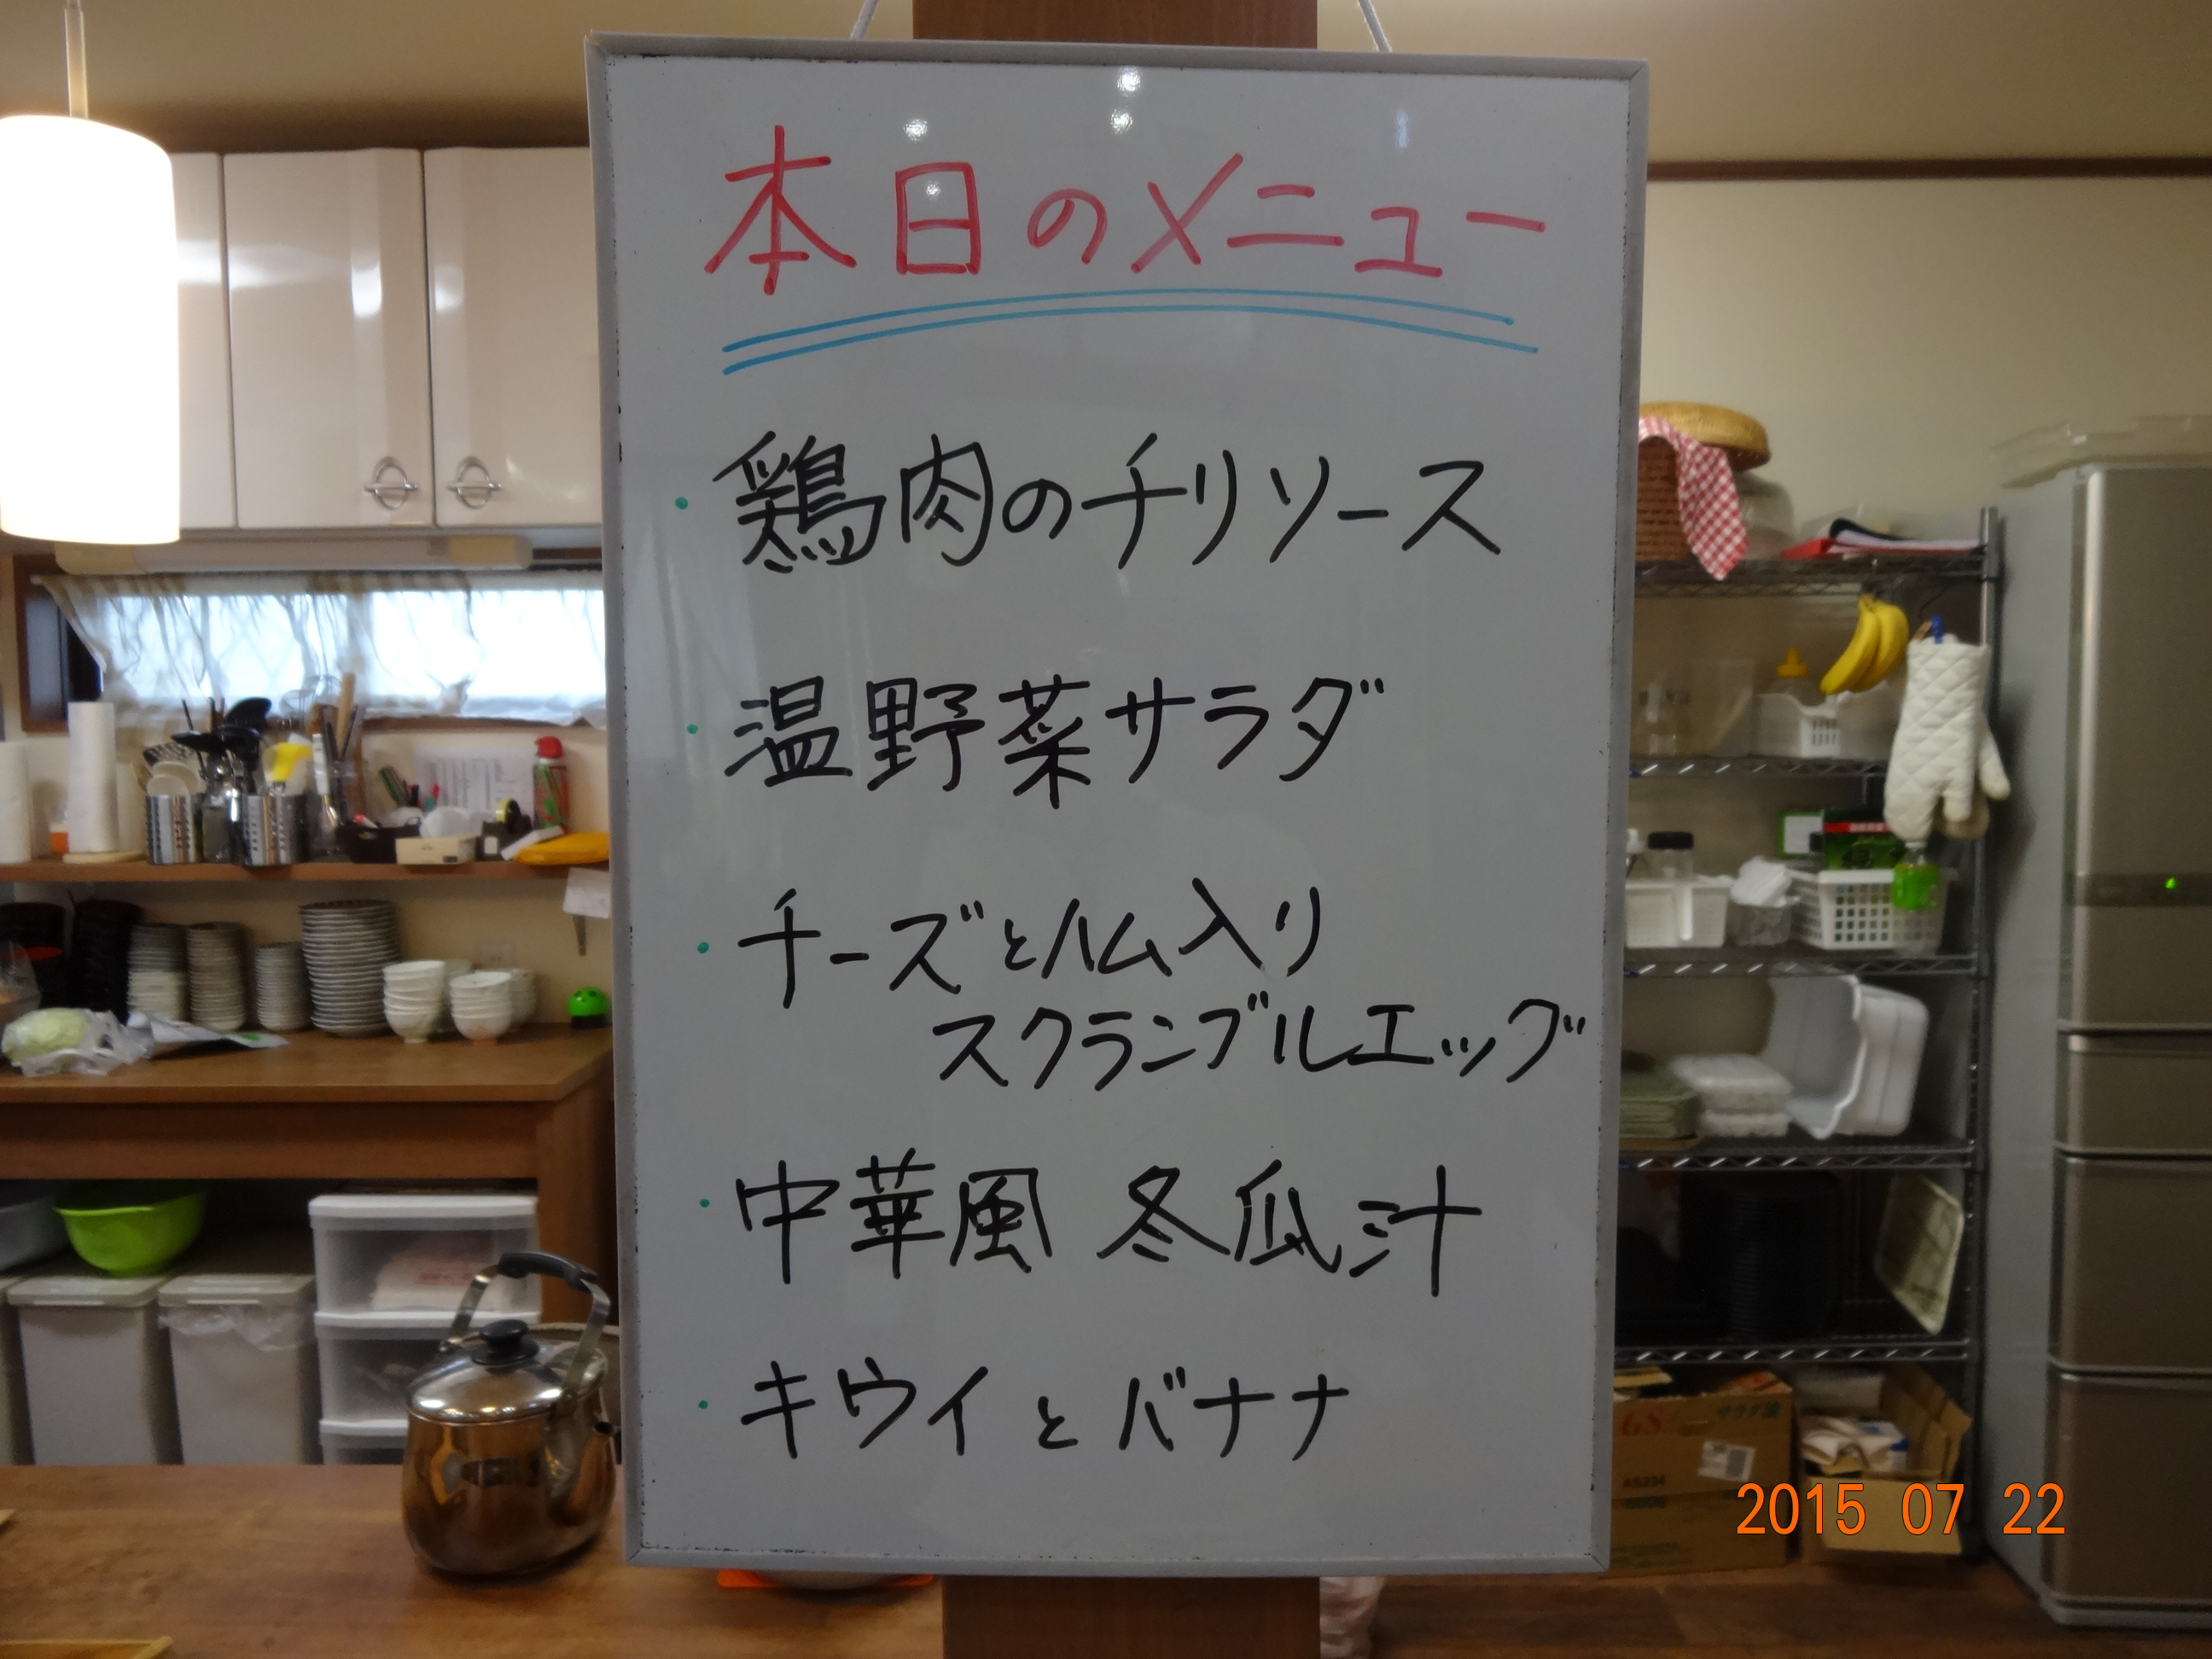 本日のメニュー
・鶏肉のチリソース
・温野菜サラダ
・チーズとハム入り
スクランブルエッグ
・中華風 冬瓜汁
・キウイとバナナ
GS サラダ油
AS234
2015 07 22